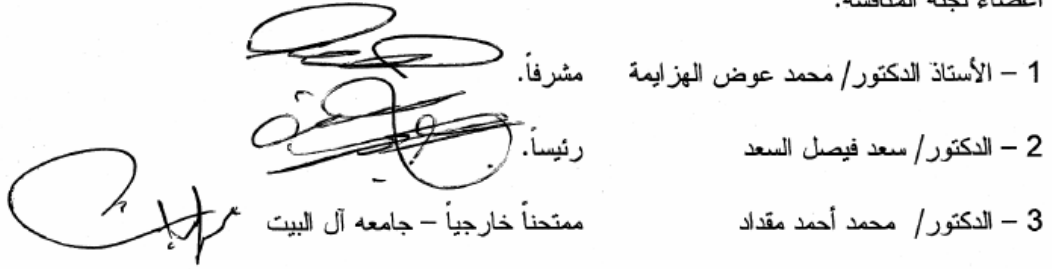 أعضاء لجنة المناقشة:
1 – الأستاذ الدكتور/ محمد عوض الهزايمة مشرفاً.
2 – الدكتور/ سعد فيصل السعد رئيساً.
3 – الدكتور/ محمد أحمد مقداد ممتحناً خارجياً – جامعه آل البيت